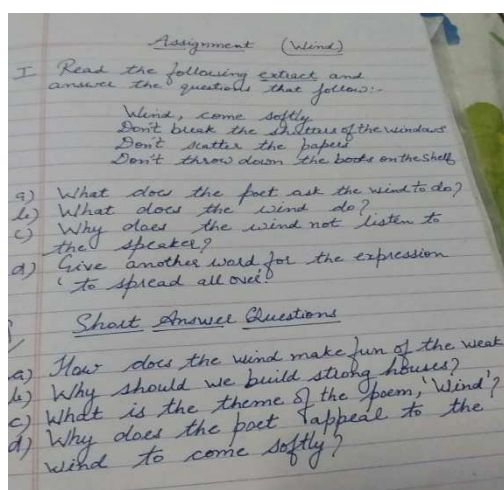 Assignment (Wind)
I Read the following extract and
answer the questions that follow:-
Wind, come softly
Don't break the shutters of the windows
Don't scatter the papers
Don't throw down the books on the shelf
a) What does the poet ask the wind to do?
b) What does the wind do?
c) Why does the wind not listen to
the speaker?
d) Give another word for the expression
'to spread all over'.
Short Answer Questions
a) How does the wind make fun of the weak
b) Why should we build strong houses?
c) What is the theme of the poem, 'Wind'?
d) Why does the poet appeal to the
wind to come softly?